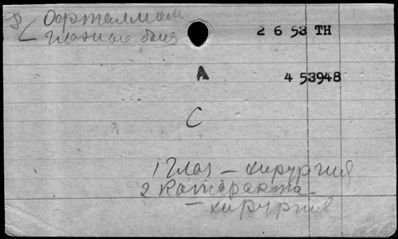 Офталмол
глазные бол
2 6 53 TH
A
4 53948
C
1 Глаз - хирургия
2 Катаракта
- хирургия